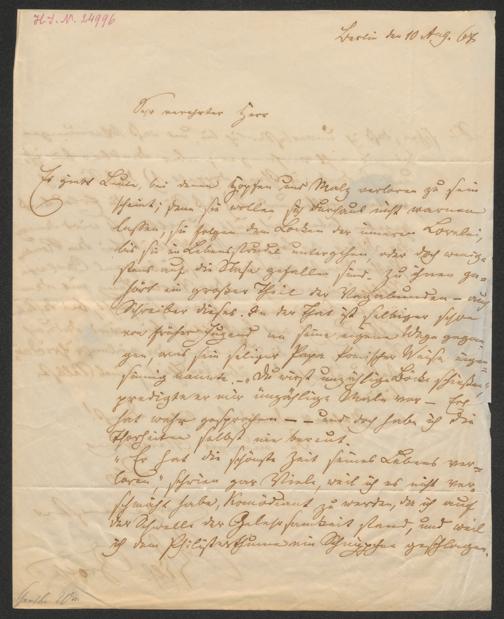 H. I. N. 24996
Berlin den 10 Aug. 68
Sehr verehrter Herr
Es giebt Leute, bei denen Hopfen und Malz verloren zu sein
scheint; denn sie wollen sich durchaus nicht warnen
lassen, sie folgen dem Locken der inneren Lorelei,
bis sie im Lebensstrudel untergehen, oder doch wenig-
stens auf die Nase gefallen sind. Zu ihnen ge-
hört ein großer Theil der Vagabunden – auch
Schreiber dieses. In der That ist selbiger schon
von früher Jugend an seine eigenen Wege gegan-
gen, was sein seliger Papa komischer Weise eigen-
sinnig nannte. „Du wirst unzählige Böcke schießen"
predigte er mir unzählige Male vor – Er
hat wahr gesprochen – – und doch habe ich die
Thorheiten selbst nie bereut.
„Er hat die schönste Zeit seines Lebens ver-
loren", schrien gar Viele, weil ich es nicht ver-
schmäht habe, Komödiant zu werden, da ich auf
der Schwelle der Gelehrsamkeit stand, und weil
ich dem Philisterthume ein Schnippchen geschlagen.